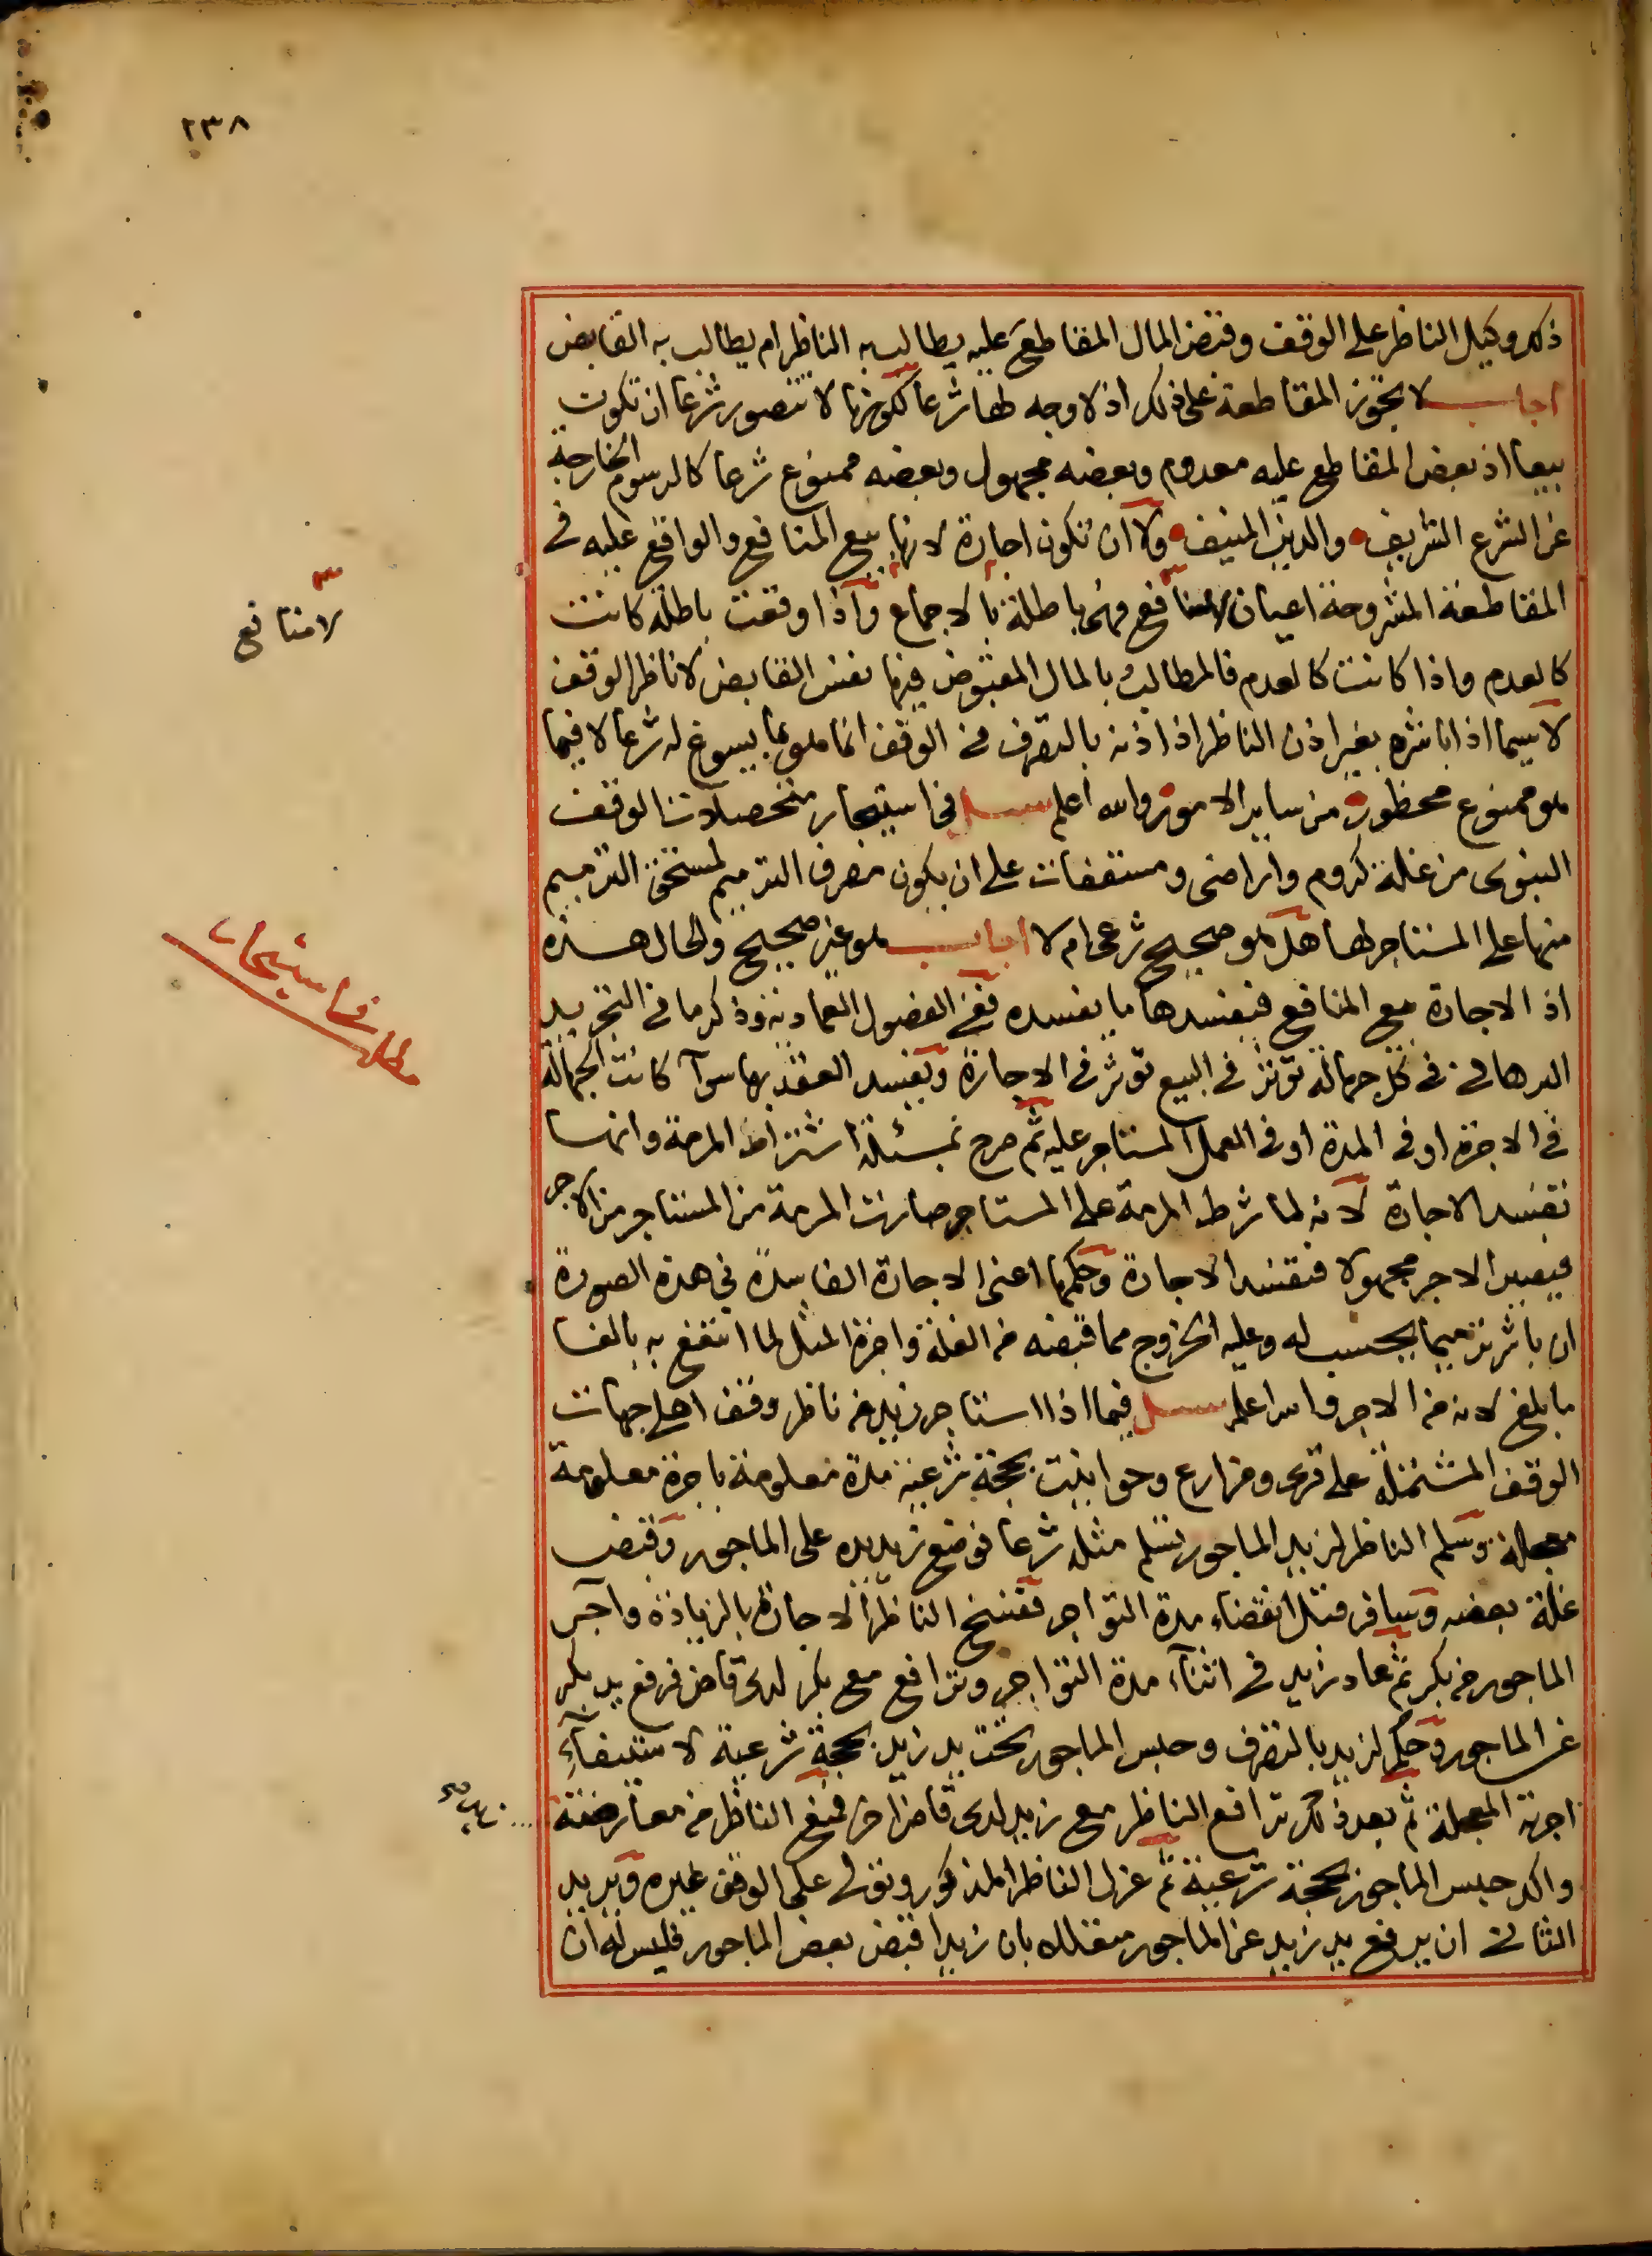 ٢٣٨
ذلك وكيل الناظر على الوقف وقبض المال المقاطع عليه يطالب به الناظر ام يطالب به القابض
اجاب لا تجوز المقاطعة على ذلك اذ لا وجه لها شرعا لكونها لا تتصور شرعا ان تكون
بيعا اذ بعض المقاطع عليه معدوم وبعضه مجهول وبعضه ممنوع شرعا كالرسوم الخارجة
عن الشرع الشريف والدين المنيف ولا ان تكون اجارة لانها بيع المنافع والواقع عليه في
المقاطعة المشروحة اعيان لا منافع وهي باطلة بالاجماع واذا وقعت باطلة كانت
لا منافع
كالعدم واذا كانت كالعدم فالمطالب بالمال المقبوض فيها نفس القابض لا ناظر الوقف
لا سيما اذا باشره بغير اذن الناظر اذ اذنه بالتصرف في الوقف انما هو بما يسوغ له شرعا لا فيما
هو ممنوع محظور من ساير الامور والله اعلم سئل في استيجار متحصلات الوقف
السنوى من غلة كروم واراضى ومستقفات على ان يكون مصرف الترميم لمستحق الترميم
منها على المستاجر لها هل هو صحيح شرعى ام لا اجاب هو غير صحيح والحال هذه
مطلب في استيجار
اذ الاجارة بيع المنافع فيفسدها ما يفسده ففي الفصول العمادية وذكرها في التجريد
البرهاني في كل جهالة تؤثر في البيع تؤثر في الاجارة ويفسد العقد بها سوآ كانت الجهالة
في الاجرة او في المدة او في العمل المستاجر عليه ثم صرح بمسئلة اشتراط المرمة وانها
تفسد الاجارة لانه لما شرط المرمة على المستاجر صارت المرمة من المستاجر من الاجر
فيصير الاجر مجهولا فتفسد الاجارة وحكمها اعنى الاجارة الفاسدة في هذه الصورة
ان باشر ترميما يحسب له وعليه الخروج مما قبضه من الغلة واجرة المثل لما انتفع به بالغا
ما بلغ لانه من الاجر والله اعلم سئل فيما اذا استاجر زيد من ناظر وقف اهلى جهات
الوقف المشتملة على قرى ومزارع وحوانيت بحجة شرعية مدة معلومة باجرة معلومة
معجلة وسلم الناظر لزيد الماجور تسلم مثله شرعا فوضع زيد يده على الماجور وقبض
غلة بعضه وسافر قبل انقضاء مدة التواجر ففسخ الناظر الاجارة بالزيادة وآجر
الماجور من بكر ثم عاد زيد في اثنآء مدة التواجر وترافع مع بكر لدى قاض فرفع يد بكر
عن الماجور وحكم لزيد بالتصرف وحبس الماجور تحت يد زيد بحجة شرعية لاستيفآء
اجرته المعجلة ثم بعد ذلك ترافع الناظر مع زيد لدى قاض اخر فمنع الناظر من معارضته
واكد حبس الماجور بحجة شرعية ثم عزل الناظر المذكور وتولى على الوقف غيره ويريد
الثاني ان يرفع يد زيد عن الماجور متعللا بان زيدا قبض بعض الماجور فليس له ان